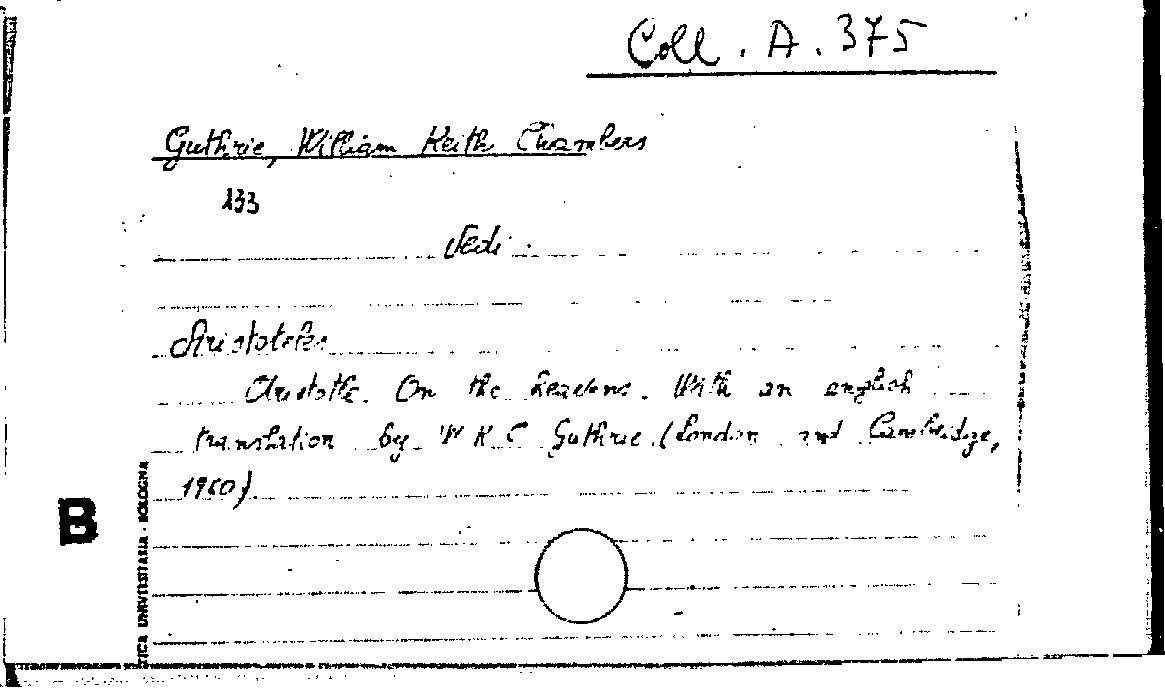 Coll. A. 375
Guthrie, William Keith Chambers
133
Vedi:
Aristoteles
Aristotle. On the heavens. With an english
translation by W K C Guthrie. (London and Cambridge,
1960).
B
TICA UNIVERSITARIA - BOLOGNA